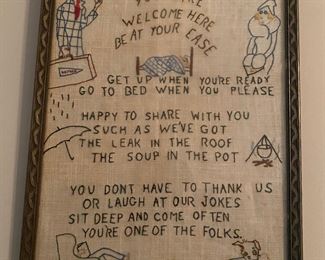 WELCOME HERE
BE AT YOUR EASE
GET UP WHEN YOU'RE READY
GO TO BED WHEN YOU PLEASE
HAPPY TO SHARE WITH YOU
SUCH AS WE'VE GOT
THE LEAK IN THE ROOF
THE SOUP IN THE POT
YOU DONT HAVE TO THANK US
OR LAUGH AT OUR JOKES
SIT DEEP AND COME OFTEN
YOU'RE ONE OF THE FOLKS.